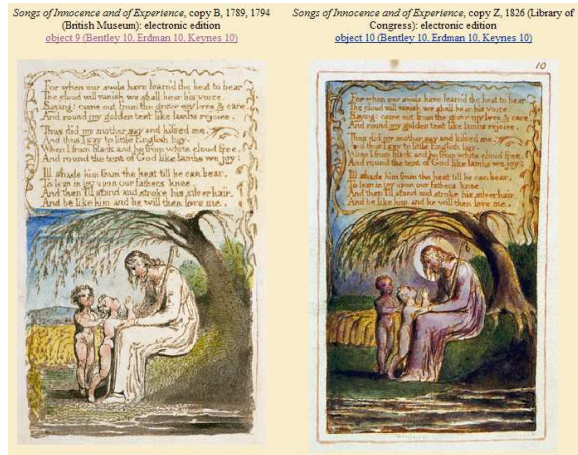 Songs of Innocence and of Experience, copy B, 1789, 1794
(British Museum): electronic edition
object 9 (Bentley 10, Erdman 10, Keynes 10)
For when our souls have learn'd the heat to bear
The cloud will vanish we shall hear his voice.
Saying: come out from the grove my love & care.
And round my golden tent like lambs rejoice.
Thus did my mother say and kissed me.
And thus I say to little English boy.
When I from black and he from white cloud free,
And round the tent of God like lambs we joy:
Ill shade him from the heat till he can bear,
To lean in joy upon our fathers knee.
And then I'll stand and stroke his silver hair,
And be like him and he will then love me.
Songs of Innocence and of Experience, copy Z, 1826 (Library of
Congress): electronic edition
object 10 (Bentley 10, Erdman 10, Keynes 10)
10
For when our souls have learn'd the heat to bear
The cloud will vanish we shall hear his voice.
Saying: come out from the grove my love & care.
And round my golden tent like lambs rejoice.
Thus did my mother say and kissed me,
And thus I say to little English boy.
When I from black and he from white cloud free,
And round the tent of God like lambs we joy:
Ill shade him from the heat till he can bear,
To lean in joy upon our fathers knee.
And then I'll stand and stroke his silver hair,
And be like him and he will then love me.